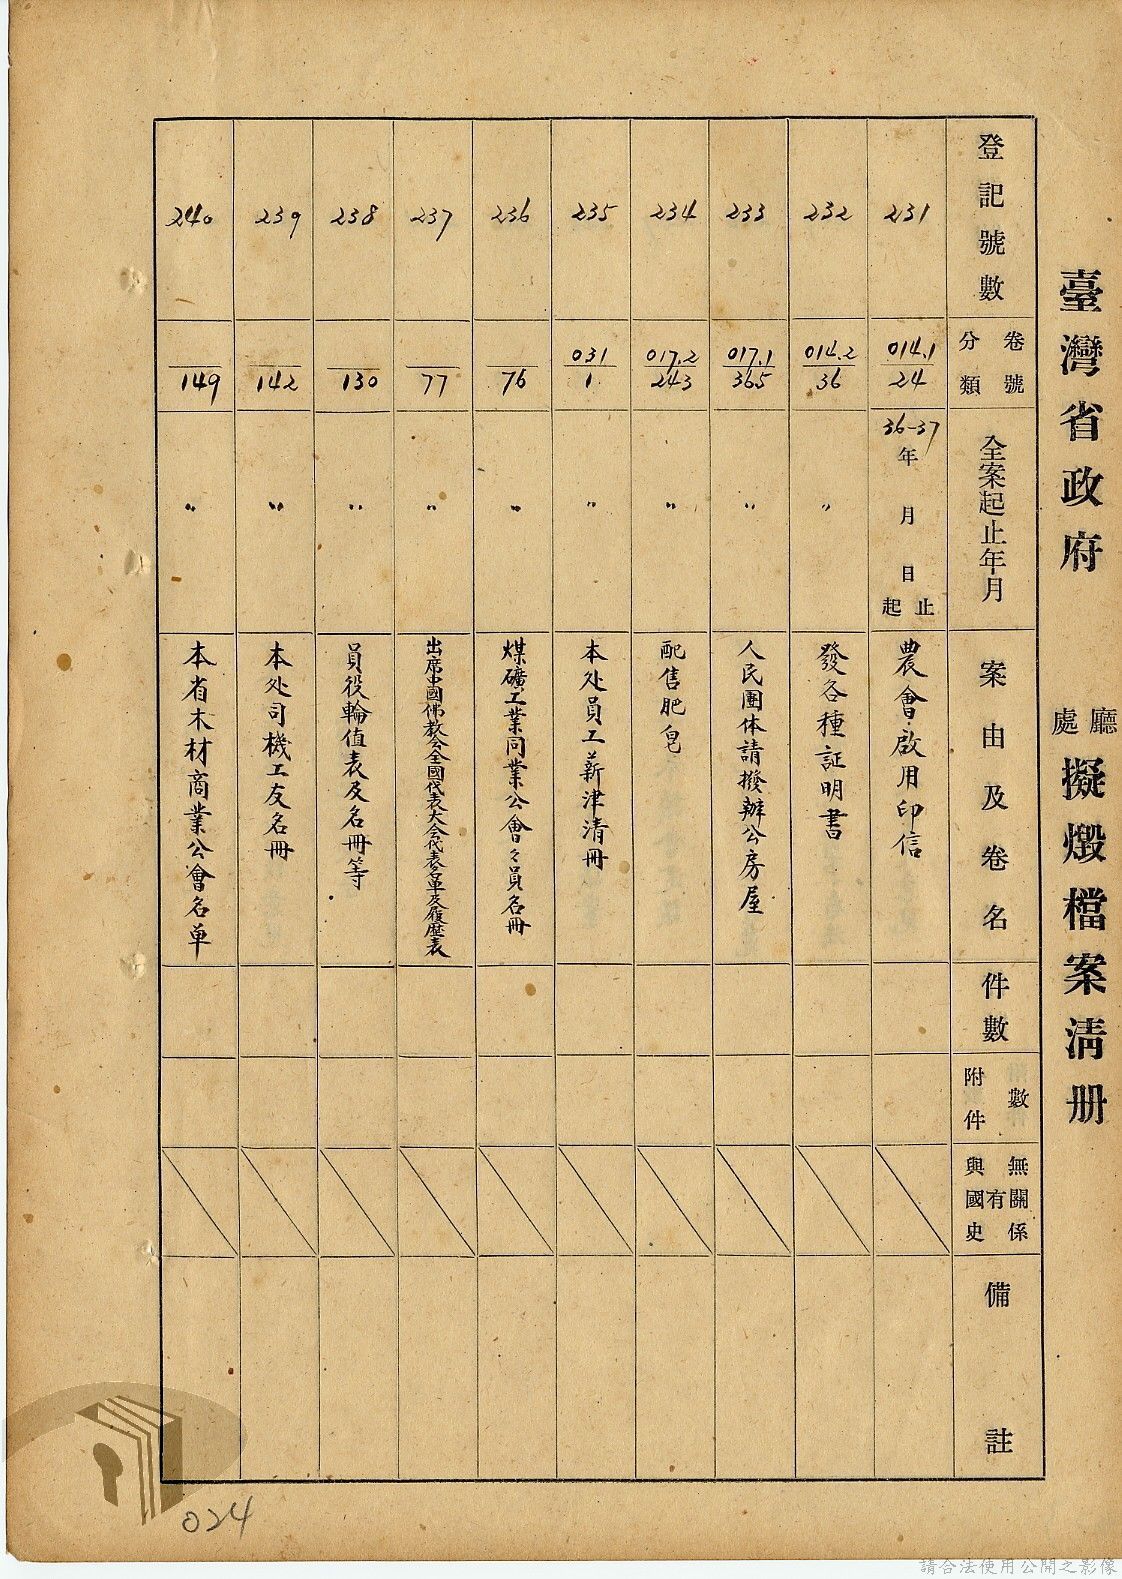 臺灣省政府 廳處 擬燬檔案清册
登記號數 分類卷號 全案起止年月 案由及卷名 件數 附件數 與國史有無關係 備註
231 014.1/24 36-37年 月 日 起止 農會啟用印信
232 014.2/36 〃 發各種証明書
233 017.1/365 〃 人民團体請撥辦公房屋
234 017.2/243 〃 配售肥皂
235 031/1 〃 本处員工薪津清冊
236 76 〃 煤礦工業同業公會々員名冊
237 77 〃 出席中國佛教会全國代表大会代表名單及履歷表
238 130 〃 員役輪值表及名冊等
239 142 〃 本处司機工友名冊
240 149 〃 本省木材商業公會名单
024
請合法使用公開之影像